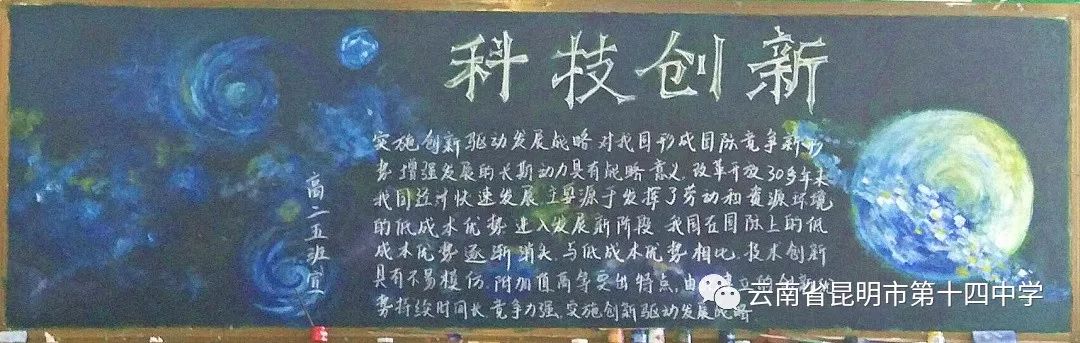 科技创新
实施创新驱动发展战略 对我国形成国际竞争新形
势 增强发展的长期动力具有战略意义.改革开放30多年来
我国经济快速发展 主要源于发挥了劳动和资源环境
的低成本优势 进入发展新阶段 我国在国际上的低
成本优势逐渐消失.与低成本优势相比,技术创新
具有不易模仿.附加值高等突出特点,由 的创新优
势持续时间长 竞争力强.实施创新驱动发展战略
高二五班宣
云南省昆明市第十四中学